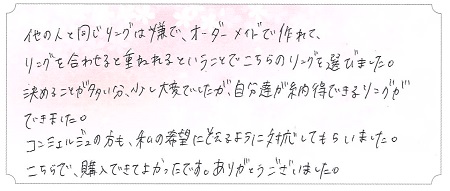 他の人と同じリングは嫌で、オーダーメイドで作れて、
リングを合わせると重ねれるということでこちらのリングを選びました。
決めることが多い分、少し大変でしたが、自分達が納得できるリングが
できました。
コンシェルジュの方も、私の希望にそえるように対応してもらいました。
こちらで、購入できてよかったです。ありがとうございました。